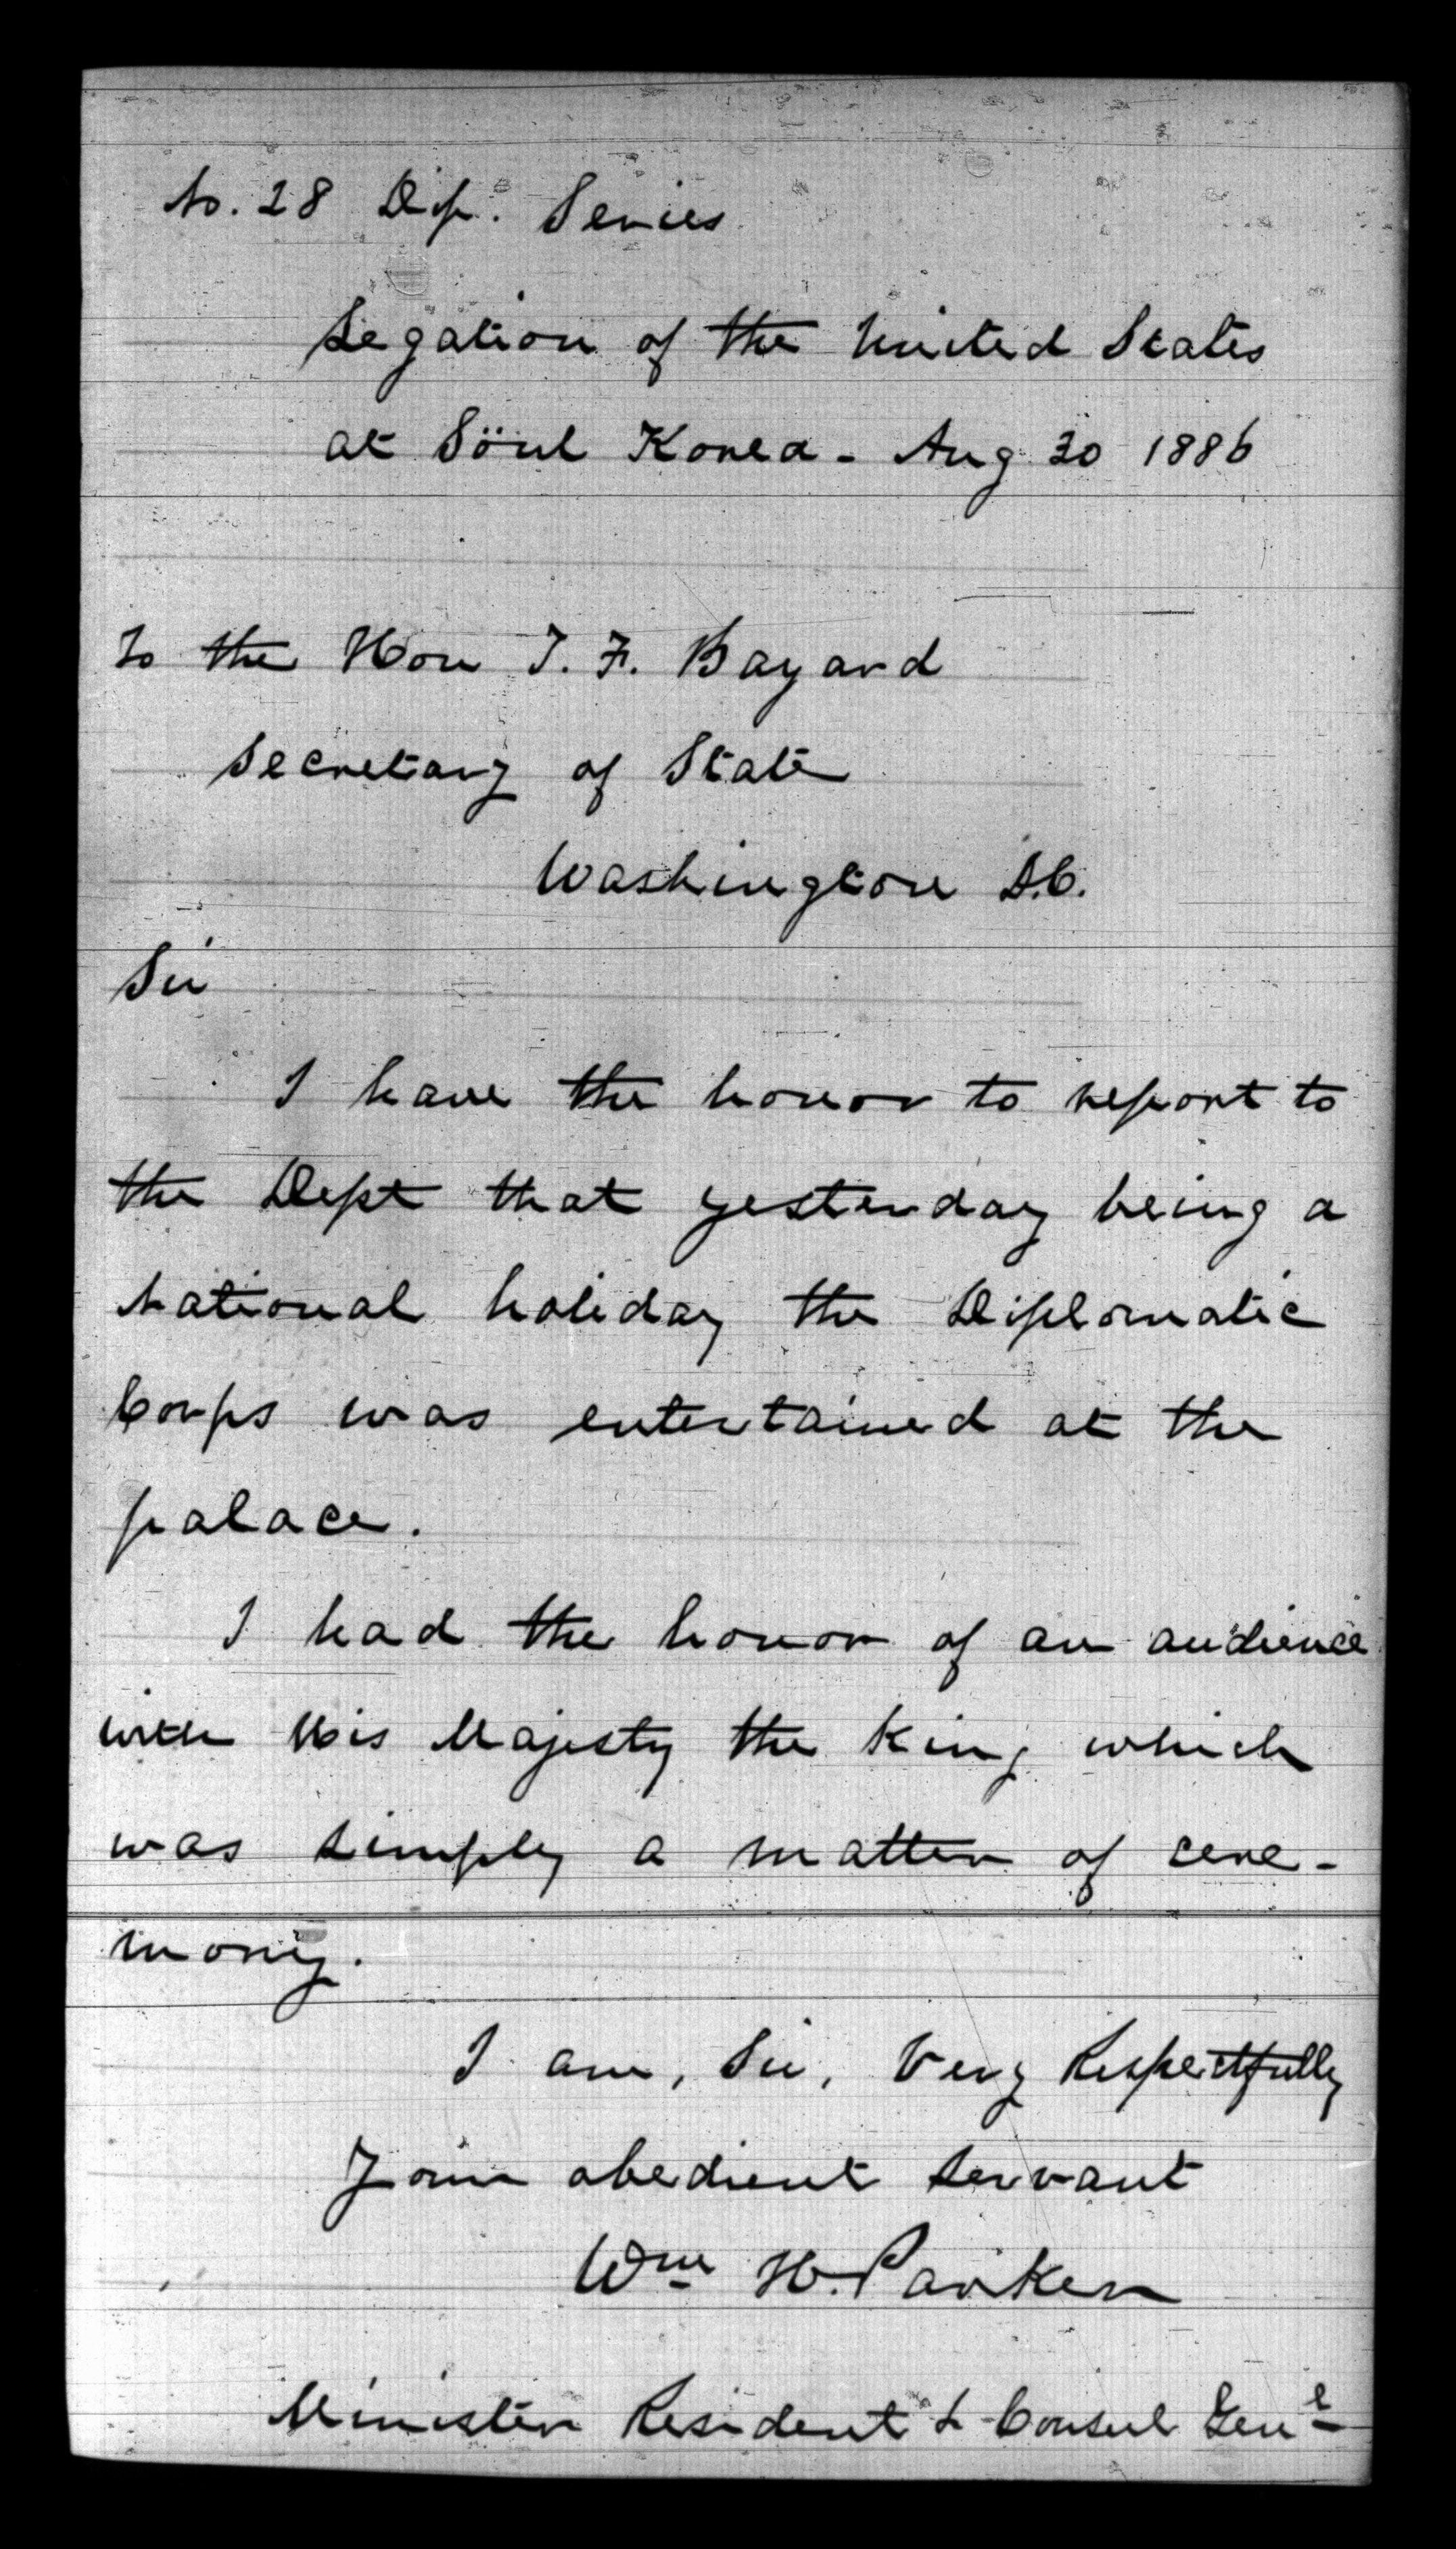 No. 28 Dip. Series
Legation of the United States
at Söul Korea - Aug 30 1886
To the Hon T. F. Bayard
Secretary of State
Washington D.C.
Sir
I have the honor to report to
the Dept that yesterday being a
National holiday the Diplomatic
Corps was entertained at the
palace.
I had the honor of an audience
with His Majesty the King which
was simply a matter of cere-
mony.
I am, Sir, Very Respectfully
Your obedient servant
Wm H. Parker
Minister Resident & Consul Genl